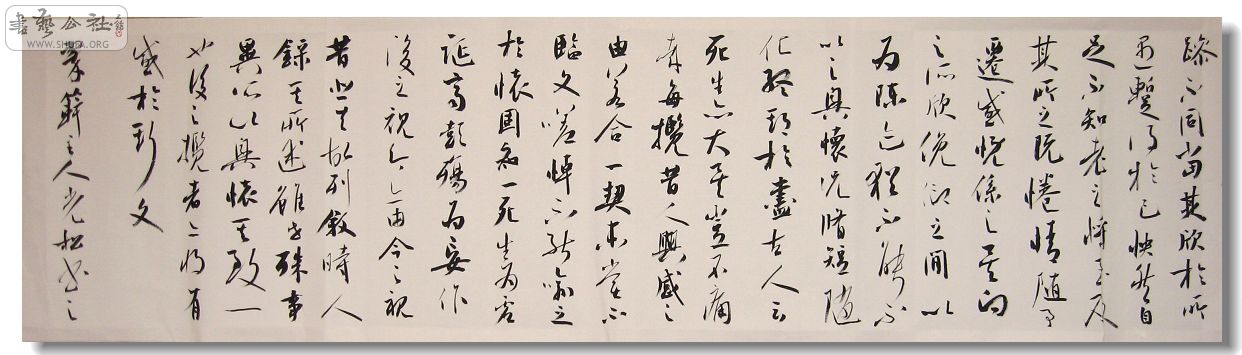 書藝公社
WWW.SHUFA.ORG
躁不同當其欣於所
遇暫得於己快然自
足不知老之將至及
其所之既惓情隨事
遷感慨係之矣向
之所欣俛仰之間以
為陳迹猶不能不
以之興懷況脩短隨
化終期於盡古人云
死生亦大矣豈不痛
哉每攬昔人興感之
由若合一契未嘗不
臨文嗟悼不能喻之
於懷固知一死生為虛
誕齊彭殤為妄作
後之視今亦由今之視
昔悲夫故列敘時人
錄其所述雖世殊事
異所以興懷其致一
也後之攬者亦將有
感於斯文
人光松書之